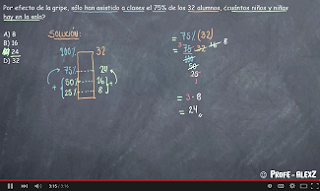 Por efecto de la gripe, sólo han asistido a clases el 75% de los 32 alumnos, ¿cuántos niños y niñas
hay en la sala?
A) 8
B) 16
24
D) 32
SOLUCIÓN:
100% 32
75% 24
50% 16
25% 8
= 75% (32)
= 3 · 8
= 24
© PROFE-ALEXZ
3:15 / 3:16